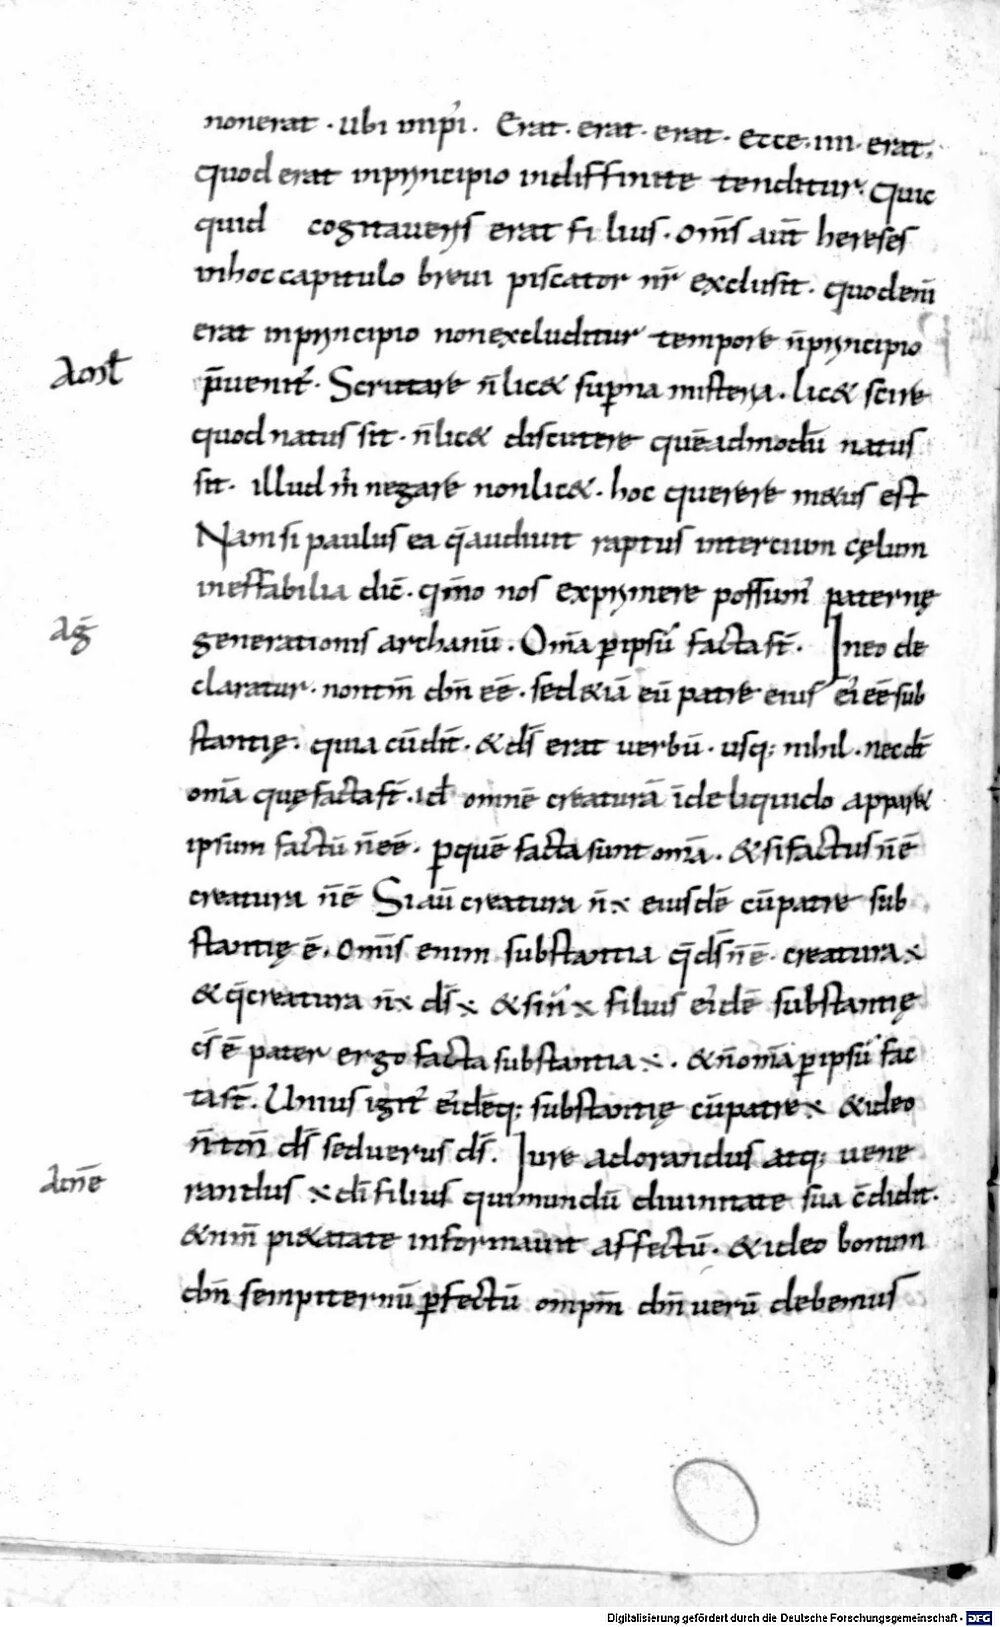 nonerat · ubi impi̾. Erat · erat · erat · ecce · iiii · erat ·
quod erat inprincipio indiffinite tenditur · quic
quid cogitaueris erat filius · om̄s aut̄ hereses
inhoc capitulo breui piscator nr̄ exclusit · quod eni̅
erat inprincipio non excluditur tempore n̄ principio
Amb̄
p̄uenit̾ · Scrutare n̄ lic& sup̱na misteria · lic& scire
quod natus sit · n̄ lic& discutere quēadmodū natus
sit · illud m̊ negare non lic& · hoc querere m&us est
Nam si paulus ea q̄ audiuit raptus intercium cęlum
ineffabilia dic̄ · qm̊o nos exprimere possum̾ paternę
Ag̅
generationis archanū · Om̄a ꝑ ipsū facta st̄ · In eo de
claratur · non tm̄ dm̄ eē · sed &iā eū patre eius d̾ eē sub
stantię · quia cū dix̄ · & ds̄ erat uerbū · usq; nihil · nec dt̄
om̄a quę facta st̄ · id ÷ omnē creaturā īde liquido appar&
ipsum factū n̄ eē · ꝑ quē facta sunt om̄a · & si factus n̄ ē
creatura n̄ ē Si aū creatura n̄ ÷ eiusdē cū patre sub
stantię ē · om̄is enim substantia q̄ ds̄ n̄ ē · creatura ÷
& q̄ creatura n̄ ÷ ds̄ ÷ & si n̄ ÷ filius ei̾dē substantię
c̄s ē pater ergo facta substantia ÷ · & n̄ om̄a ꝑ ipsū fac
ta st̄ · Unius igit̾ ei̾dēq; substantię cū patre ÷ & ideo
n̄ tm̄ ds̄ sed uerus ds̄ · Iure adorandus atq; uene
Acnē
randus ÷ di̅ filius qui mundū diuinitate sua c̄didit ·
& nm̄ pi&atate informauit affectū · & ideo bonum
dm̄ sempiternū ꝑfectū omp̄m dm̄ uerū debemus
Digitalisierung gefördert durch die Deutsche Forschungsgemeinschaft · DFG